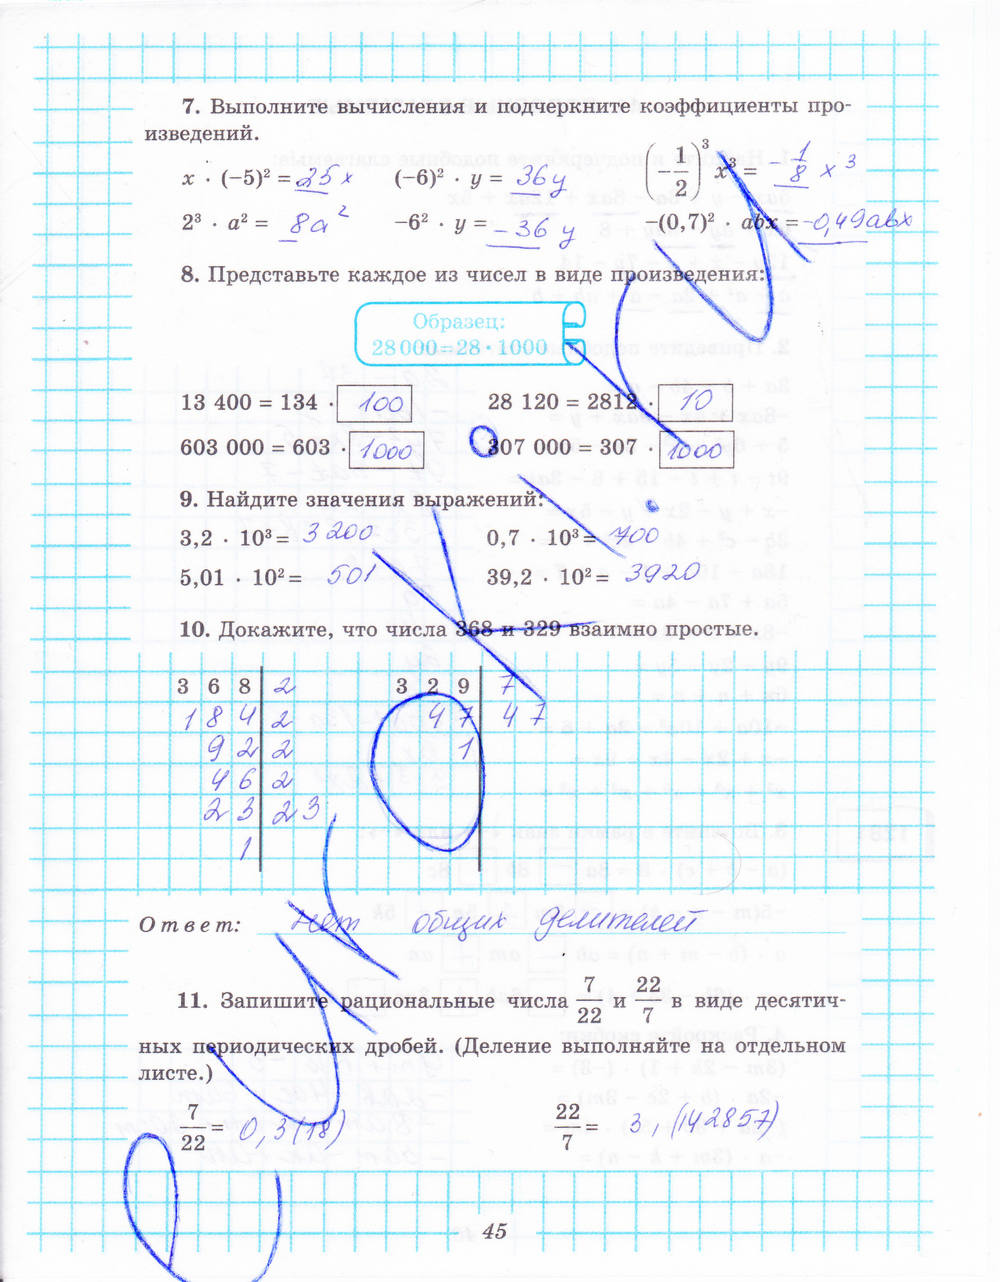 7. Выполните вычисления и подчеркните коэффициенты про-
изведений.
x · (−5)² = 25x (−6)² · y = 36y (−1/2)³ x³ = −1/8 x³
2³ · a² = 8a² −6² · y = −36y −(0,7)² · abx = −0,49abx
8. Представьте каждое из чисел в виде произведения:
Образец:
28 000 = 28 · 1000
13 400 = 134 · 100 28 120 = 2812 · 10
603 000 = 603 · 1000 307 000 = 307 · 1000
9. Найдите значения выражений:
3,2 · 10³ = 3200 0,7 · 10³ = 700
5,01 · 10² = 501 39,2 · 10² = 3920
10. Докажите, что числа 368 и 329 взаимно простые.
3 6 8 | 2 3 2 9 | 7
1 8 4 | 2 4 7 | 4 7
9 2 | 2 1
4 6 | 2
2 3 | 2 3
1
Ответ: Нет общих делителей
11. Запишите рациональные числа 7/22 и 22/7 в виде десятич-
ных периодических дробей. (Деление выполняйте на отдельном
листе.)
7/22 = 0,3(18) 22/7 = 3,(142857)
45